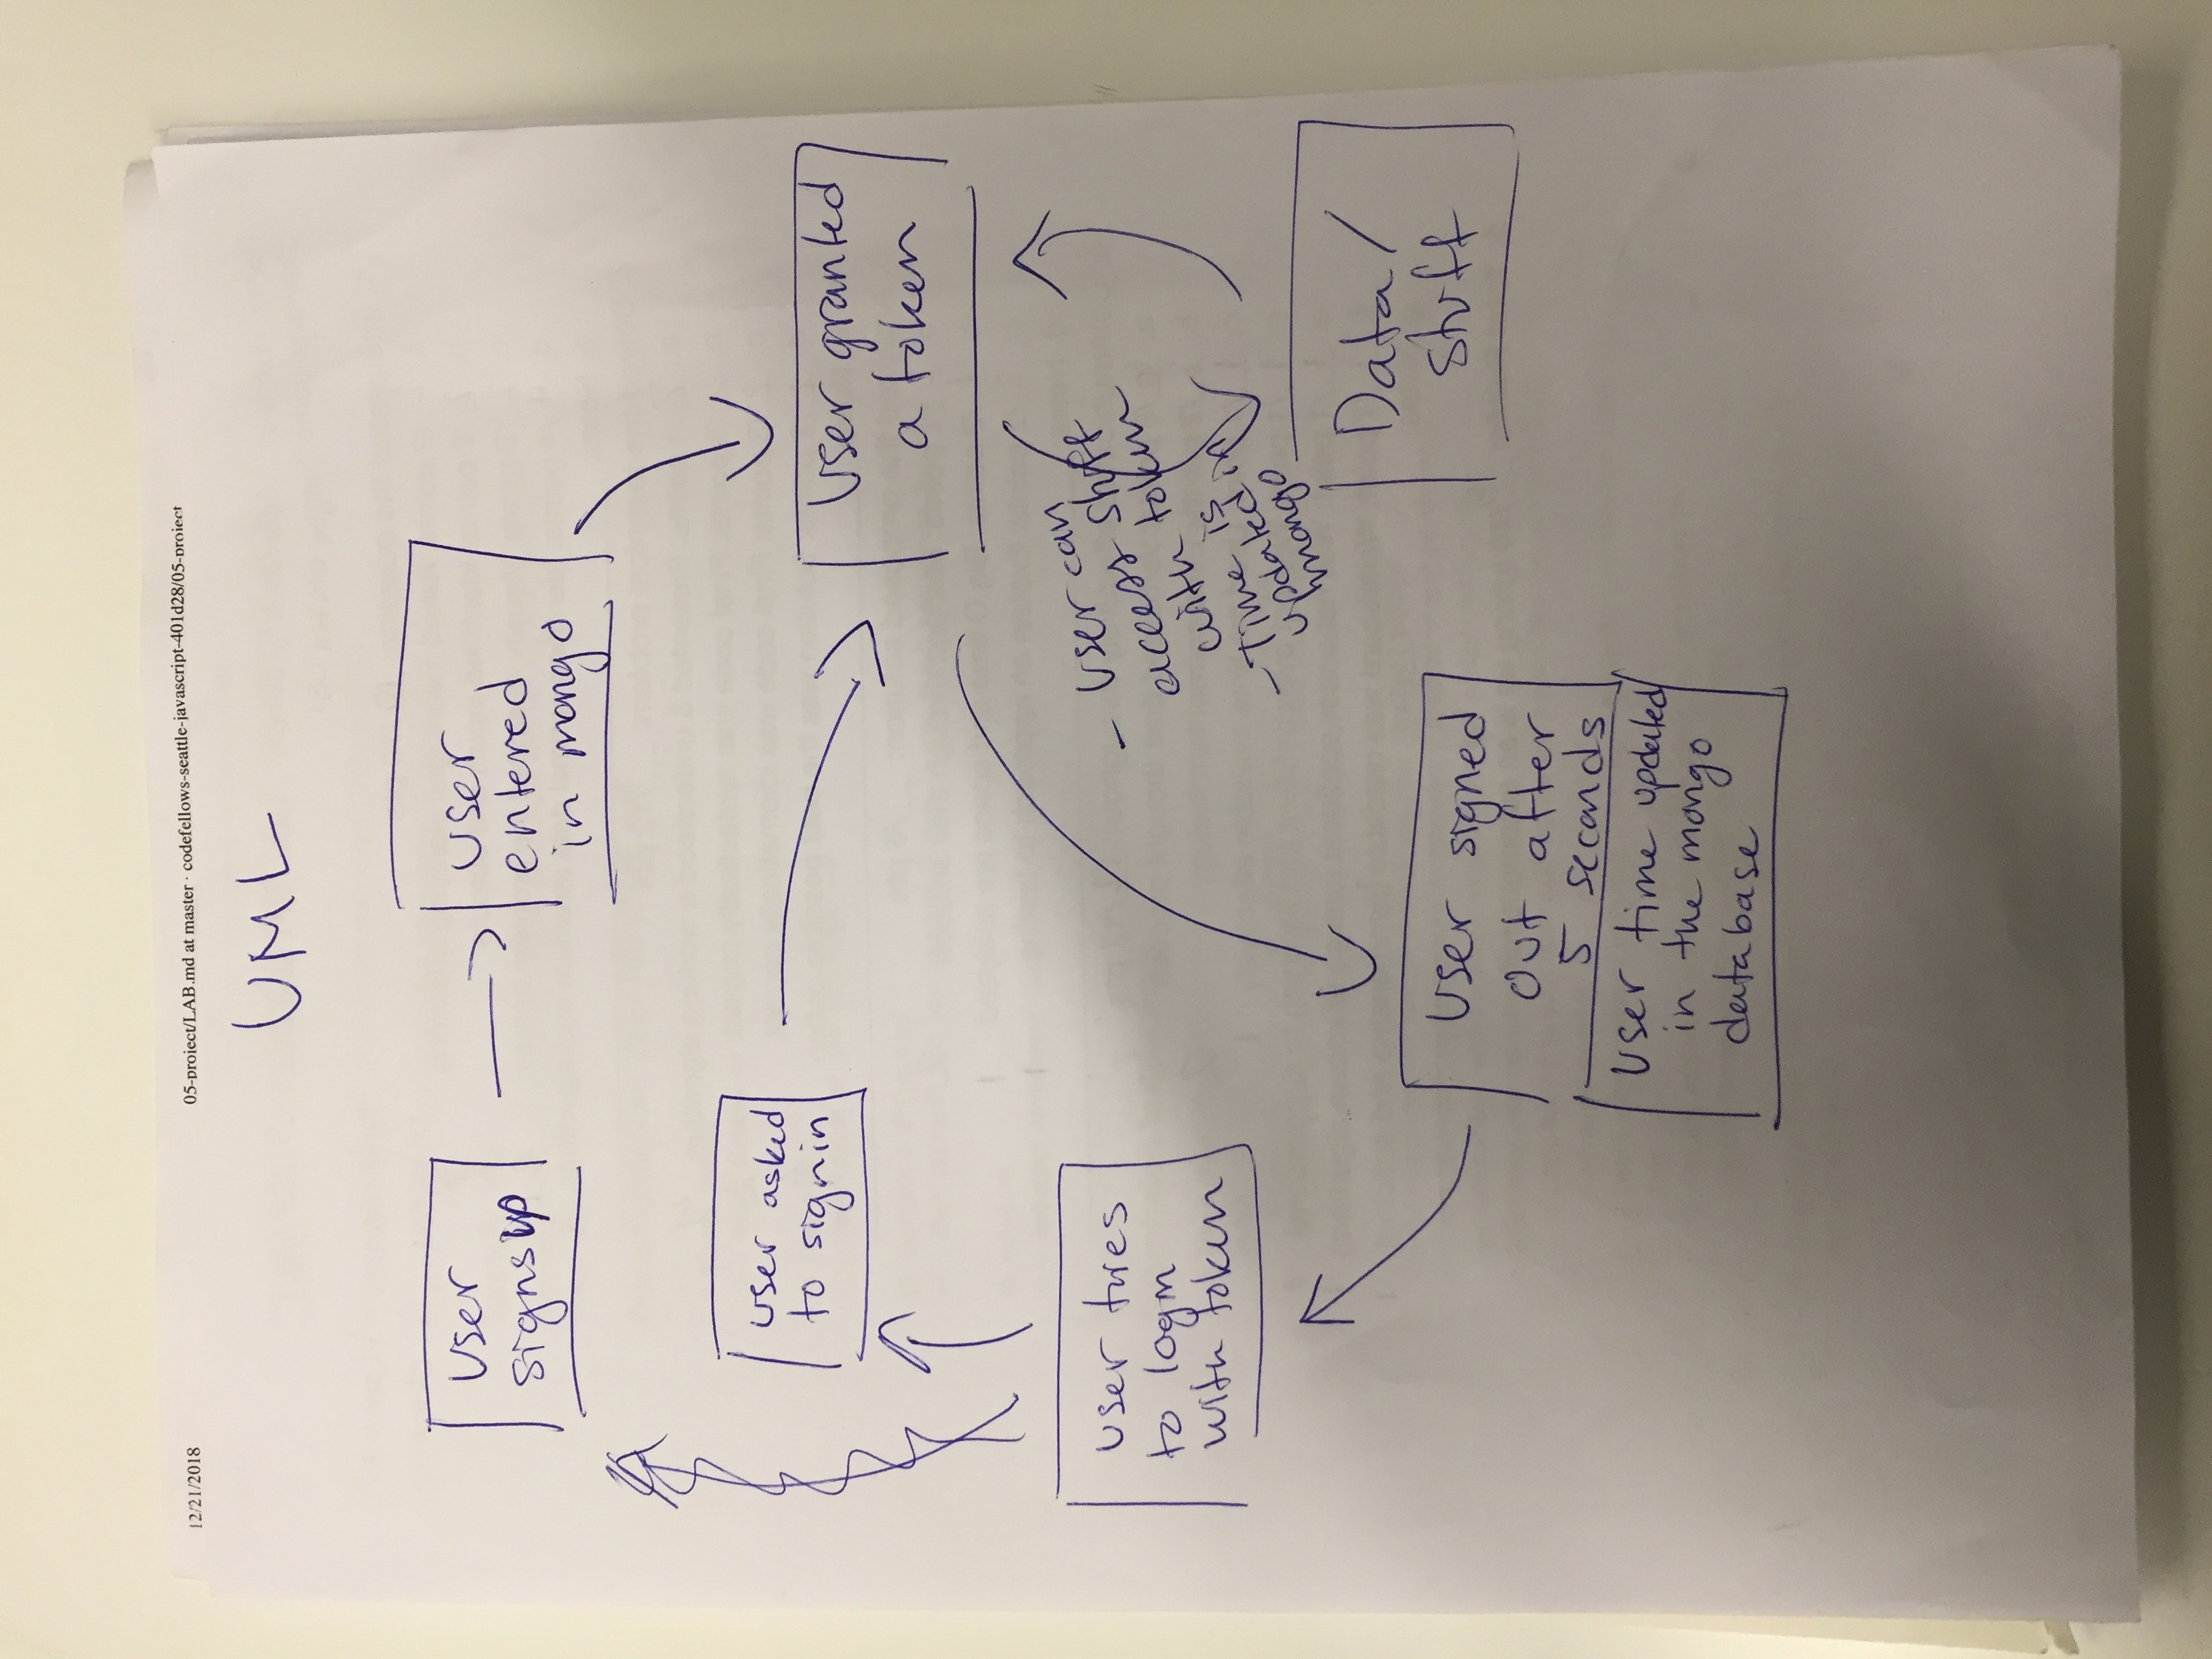 12/21/2018
05-project/LAB.md at master · codefellows-seattle-javascript-401d28/05-project
UML
user
signsup
user
entered
in mongo
user asked
to signin
User granted
a token
user tires
to login
with token
- User can
access stuff
with token
- Time is
updated in
mongo
Data/
stuff
User signed
out after
5 seconds
User time updated
in the mongo
database